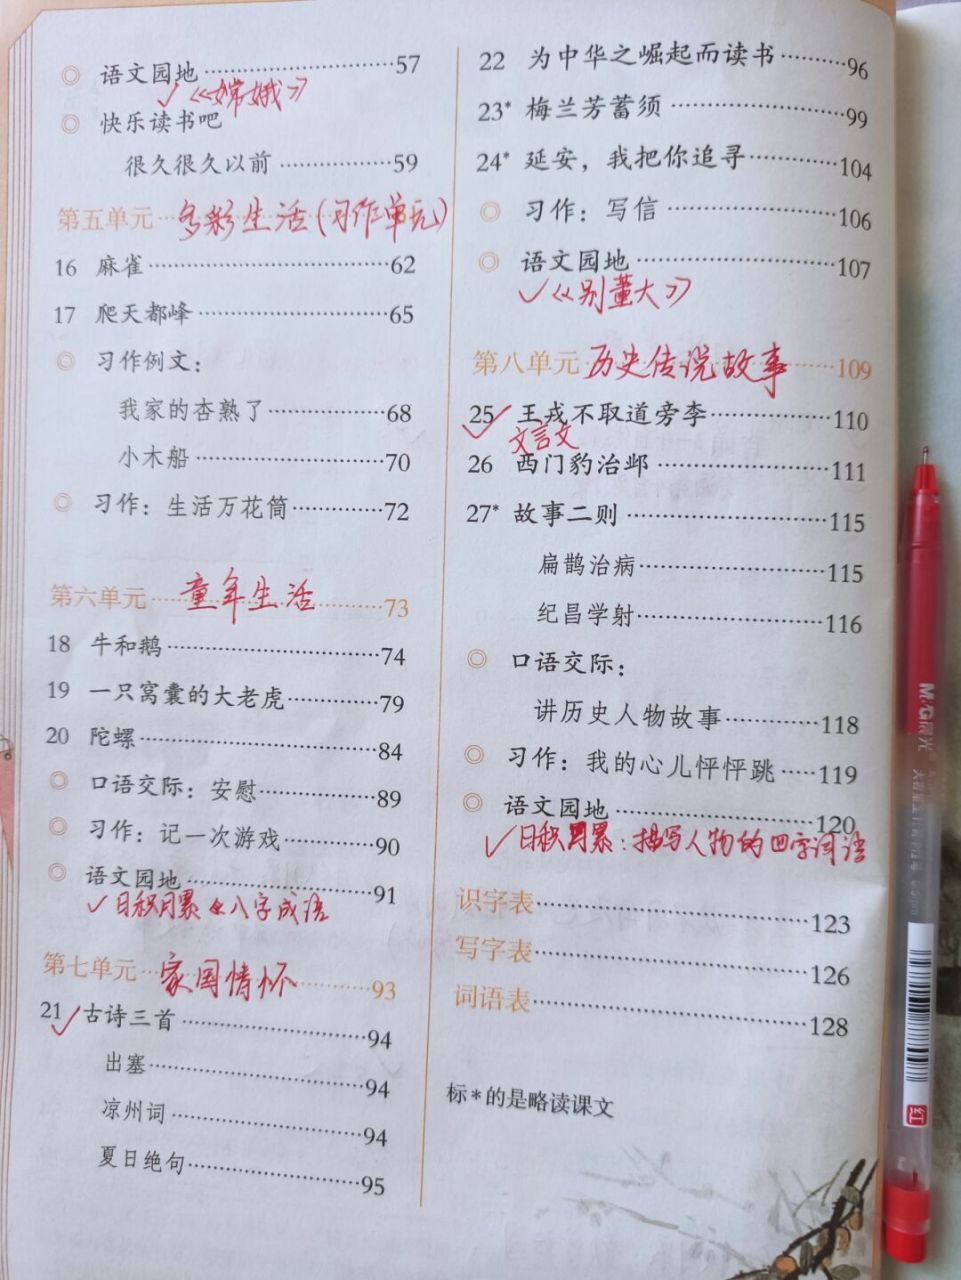 ◎ 语文园地……………………57
✓《嫦娥》
◎ 快乐读书吧
很久很久以前………………59
第五单元 多彩生活(习作单元)
16 麻雀……………………………62
17 爬天都峰………………………65
◎ 习作例文：
我家的杏熟了………………68
小木船………………………70
◎ 习作：生活万花筒……………72
第六单元 童年生活 73
18 牛和鹅…………………………74
19 一只窝囊的大老虎……………79
20 陀螺……………………………84
◎ 口语交际：安慰………………89
◎ 习作：记一次游戏……………90
◎ 语文园地………………………91
✓日积月累《八字成语
第七单元 家国情怀 93
21✓ 古诗三首………………………94
出塞…………………………94
凉州词………………………94
夏日绝句……………………95
22 为中华之崛起而读书………96
23* 梅兰芳蓄须…………………99
24* 延安，我把你追寻…………104
◎ 习作：写信…………………106
◎ 语文园地……………………107
✓《别董大》
第八单元 历史传说故事 109
25✓ 王戎不取道旁李……………110
文言文
26 西门豹治邺…………………111
27* 故事二则……………………115
扁鹊治病…………………115
纪昌学射…………………116
◎ 口语交际：
讲历史人物故事…………118
◎ 习作：我的心儿怦怦跳……119
◎ 语文园地……………………120
✓日积月累：描写人物的四字词语
识字表…………………………123
写字表…………………………126
词语表…………………………128
标*的是略读课文
M&G晨光
红